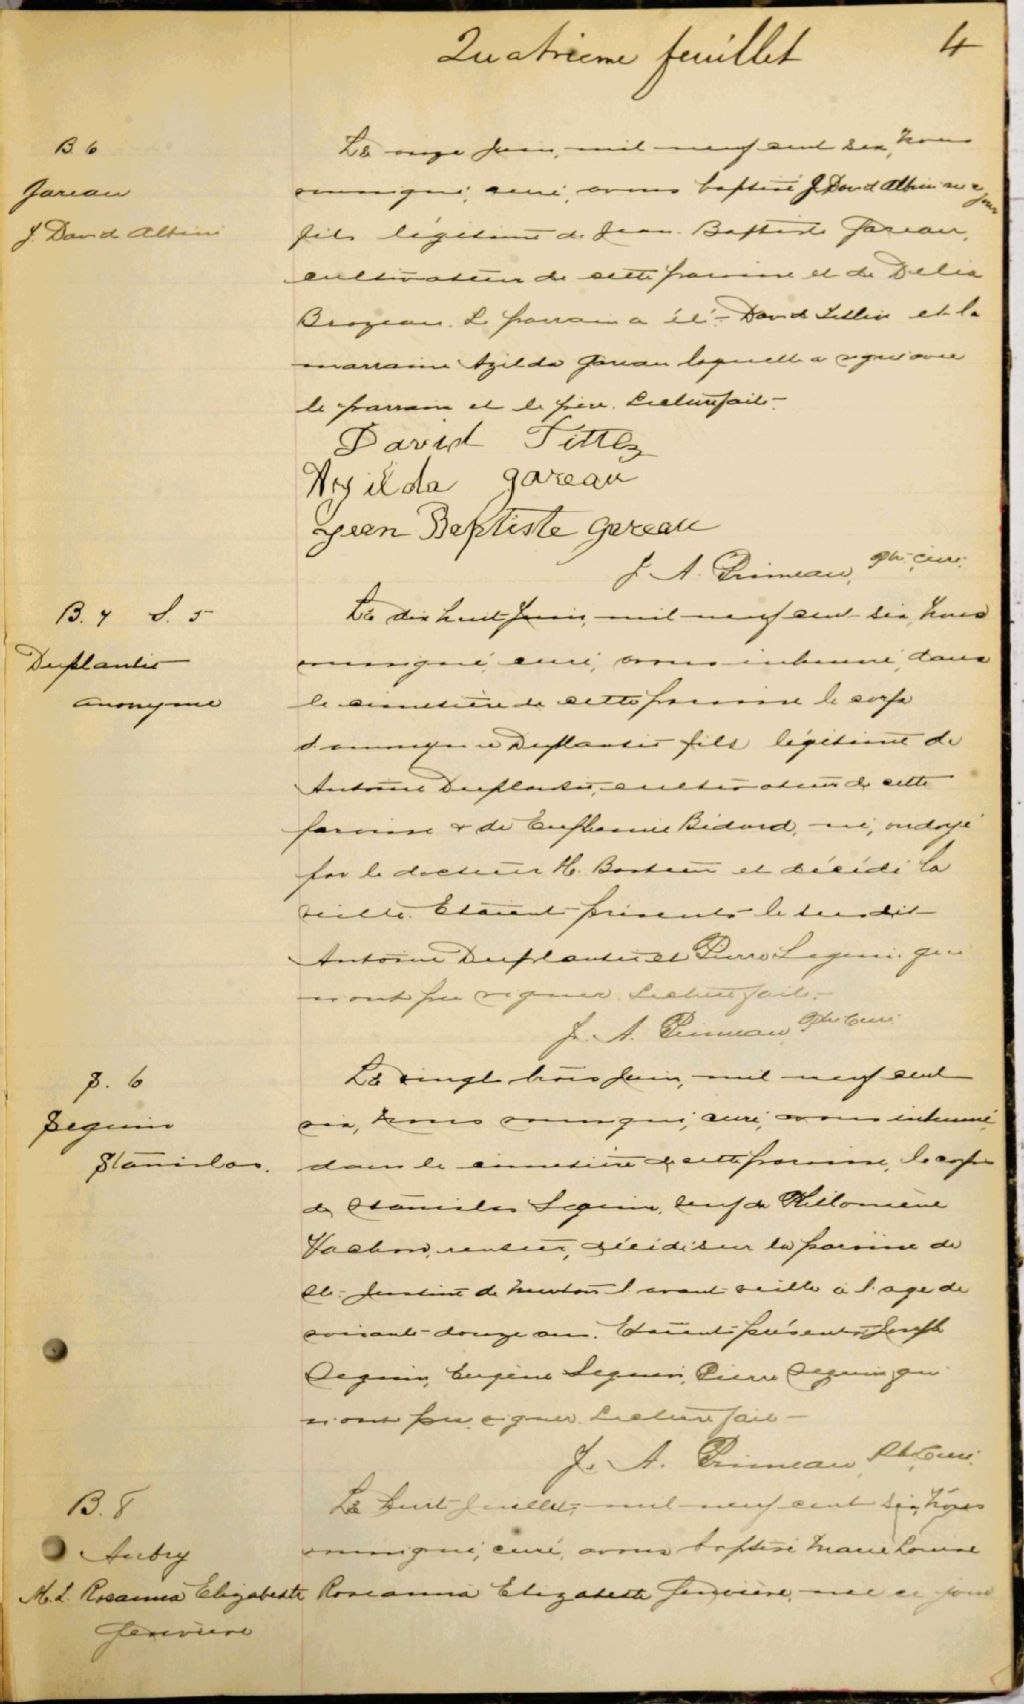 Quatrieme feuillet 4
B 6
Gareau
J. David Albini
Le onze Juin, mil neuf cent six, Nous
soussigné, curé, avons baptisé J. David Albini né ce jour
fils légitime de Jean Baptiste Gareau,
cultivateur de cette paroisse et de Delia
Brazeau. Le parrain a été David et la
marraine Azilda Gareau laquelle a signé avec
le parrain et le père. Lecture faite.
David
Azilda gareau
Jean Baptiste gareau
J. A. Primeau, Ptre curé.
B. 7 S. 5
Duplantis
anonyme
Le dix huit Juin, mil neuf cent six, Nous
soussigné, curé, avons inhumé, dans
le cimetière de cette paroisse le corps
d'anonyme Duplantis fils légitime de
Antoine Duplantis, cultivateur de cette
paroisse & de Euphemie Bédard, né, ondoyé
par le docteur H. et décédé la
veille. Etaient présents le susdit
Antoine Duplantis et Pierre Seguin qui
n'ont pu signer. Lecture faite.
J. A. Primeau Ptre Curé
S. 6
Seguin
Stanislas.
Le vingt trois Juin, mil neuf cent
six, Nous soussigné, curé, avons inhumé,
dans le cimetière de cette paroisse, le corps
de Stanislas Seguin, veuf de Philomène
Vachon, rentier, décédé sur la paroisse de
Ste. Justine de Newton l'avant veille à l'age de
soixante-douze ans. Etaient présents Joseph
Seguin, Eugène Seguin, Pierre Seguin qui
n'ont pu signer. Lecture faite
J. A. Primeau, Ptre Curé.
B. 8
Aubry
M. L. Rosanna Elizabeth
Genvière
Le huit Juillet, mil neuf cent six, Nous
soussigné, curé, avons baptisé Marie Louise
Roseanna Elizabeth Genvière, née ce jour